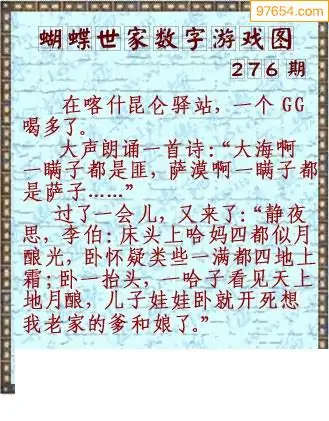 97654.com
蝴蝶世家数字游戏图
276期
在喀什昆仑驿站，一个GG
喝多了。
大声朗诵一首诗：“大海啊
一瞒子都是匪，萨漠啊一瞒子都
是萨子……”
过了一会儿，又来了：“静夜
思，李伯：床头上哈妈四都似月
酿光，卧怀疑类些一满都四地上
霜；卧一抬头，一哈子看见天上
地月酿，儿子娃娃卧就开死想
我老家的爹和娘了。”